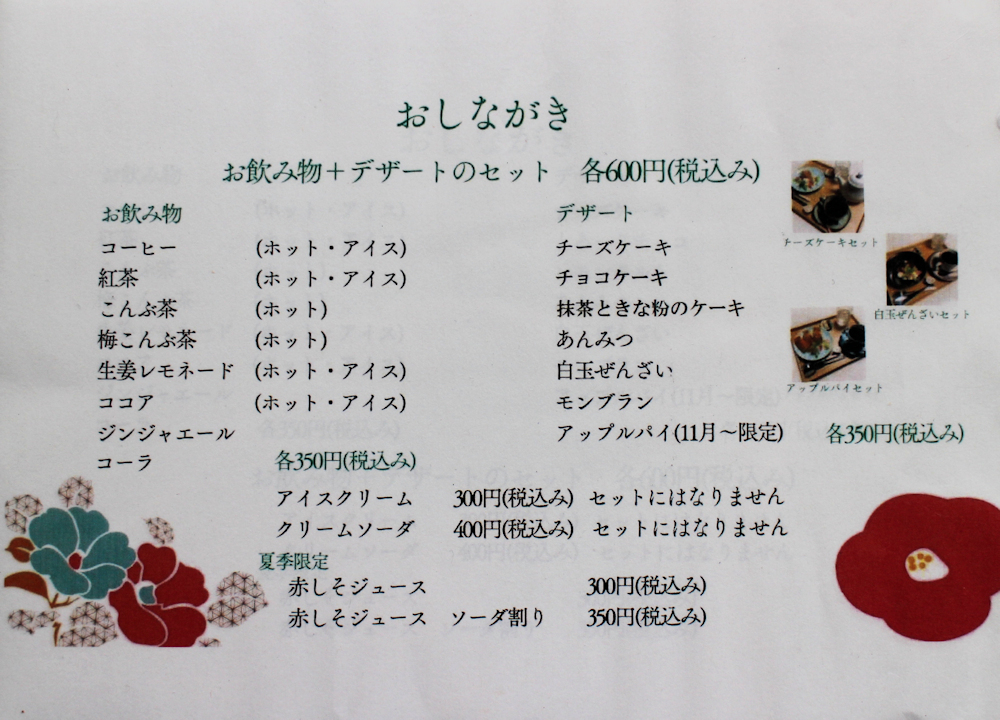 おしながき
お飲み物+デザートのセット 各600円(税込み)
お飲み物
コーヒー (ホット・アイス)
紅茶 (ホット・アイス)
こんぶ茶 (ホット)
梅こんぶ茶 (ホット)
生姜レモネード (ホット・アイス)
ココア (ホット・アイス)
ジンジャエール
コーラ 各350円(税込み)
デザート
チーズケーキ
チョコケーキ
抹茶ときな粉のケーキ
あんみつ
白玉ぜんざい
モンブラン
アップルパイ(11月〜限定) 各350円(税込み)
チーズケーキセット
白玉ぜんざいセット
アップルパイセット
アイスクリーム 300円(税込み) セットにはなりません
クリームソーダ 400円(税込み) セットにはなりません
夏季限定
赤しそジュース 300円(税込み)
赤しそジュース ソーダ割り 350円(税込み)